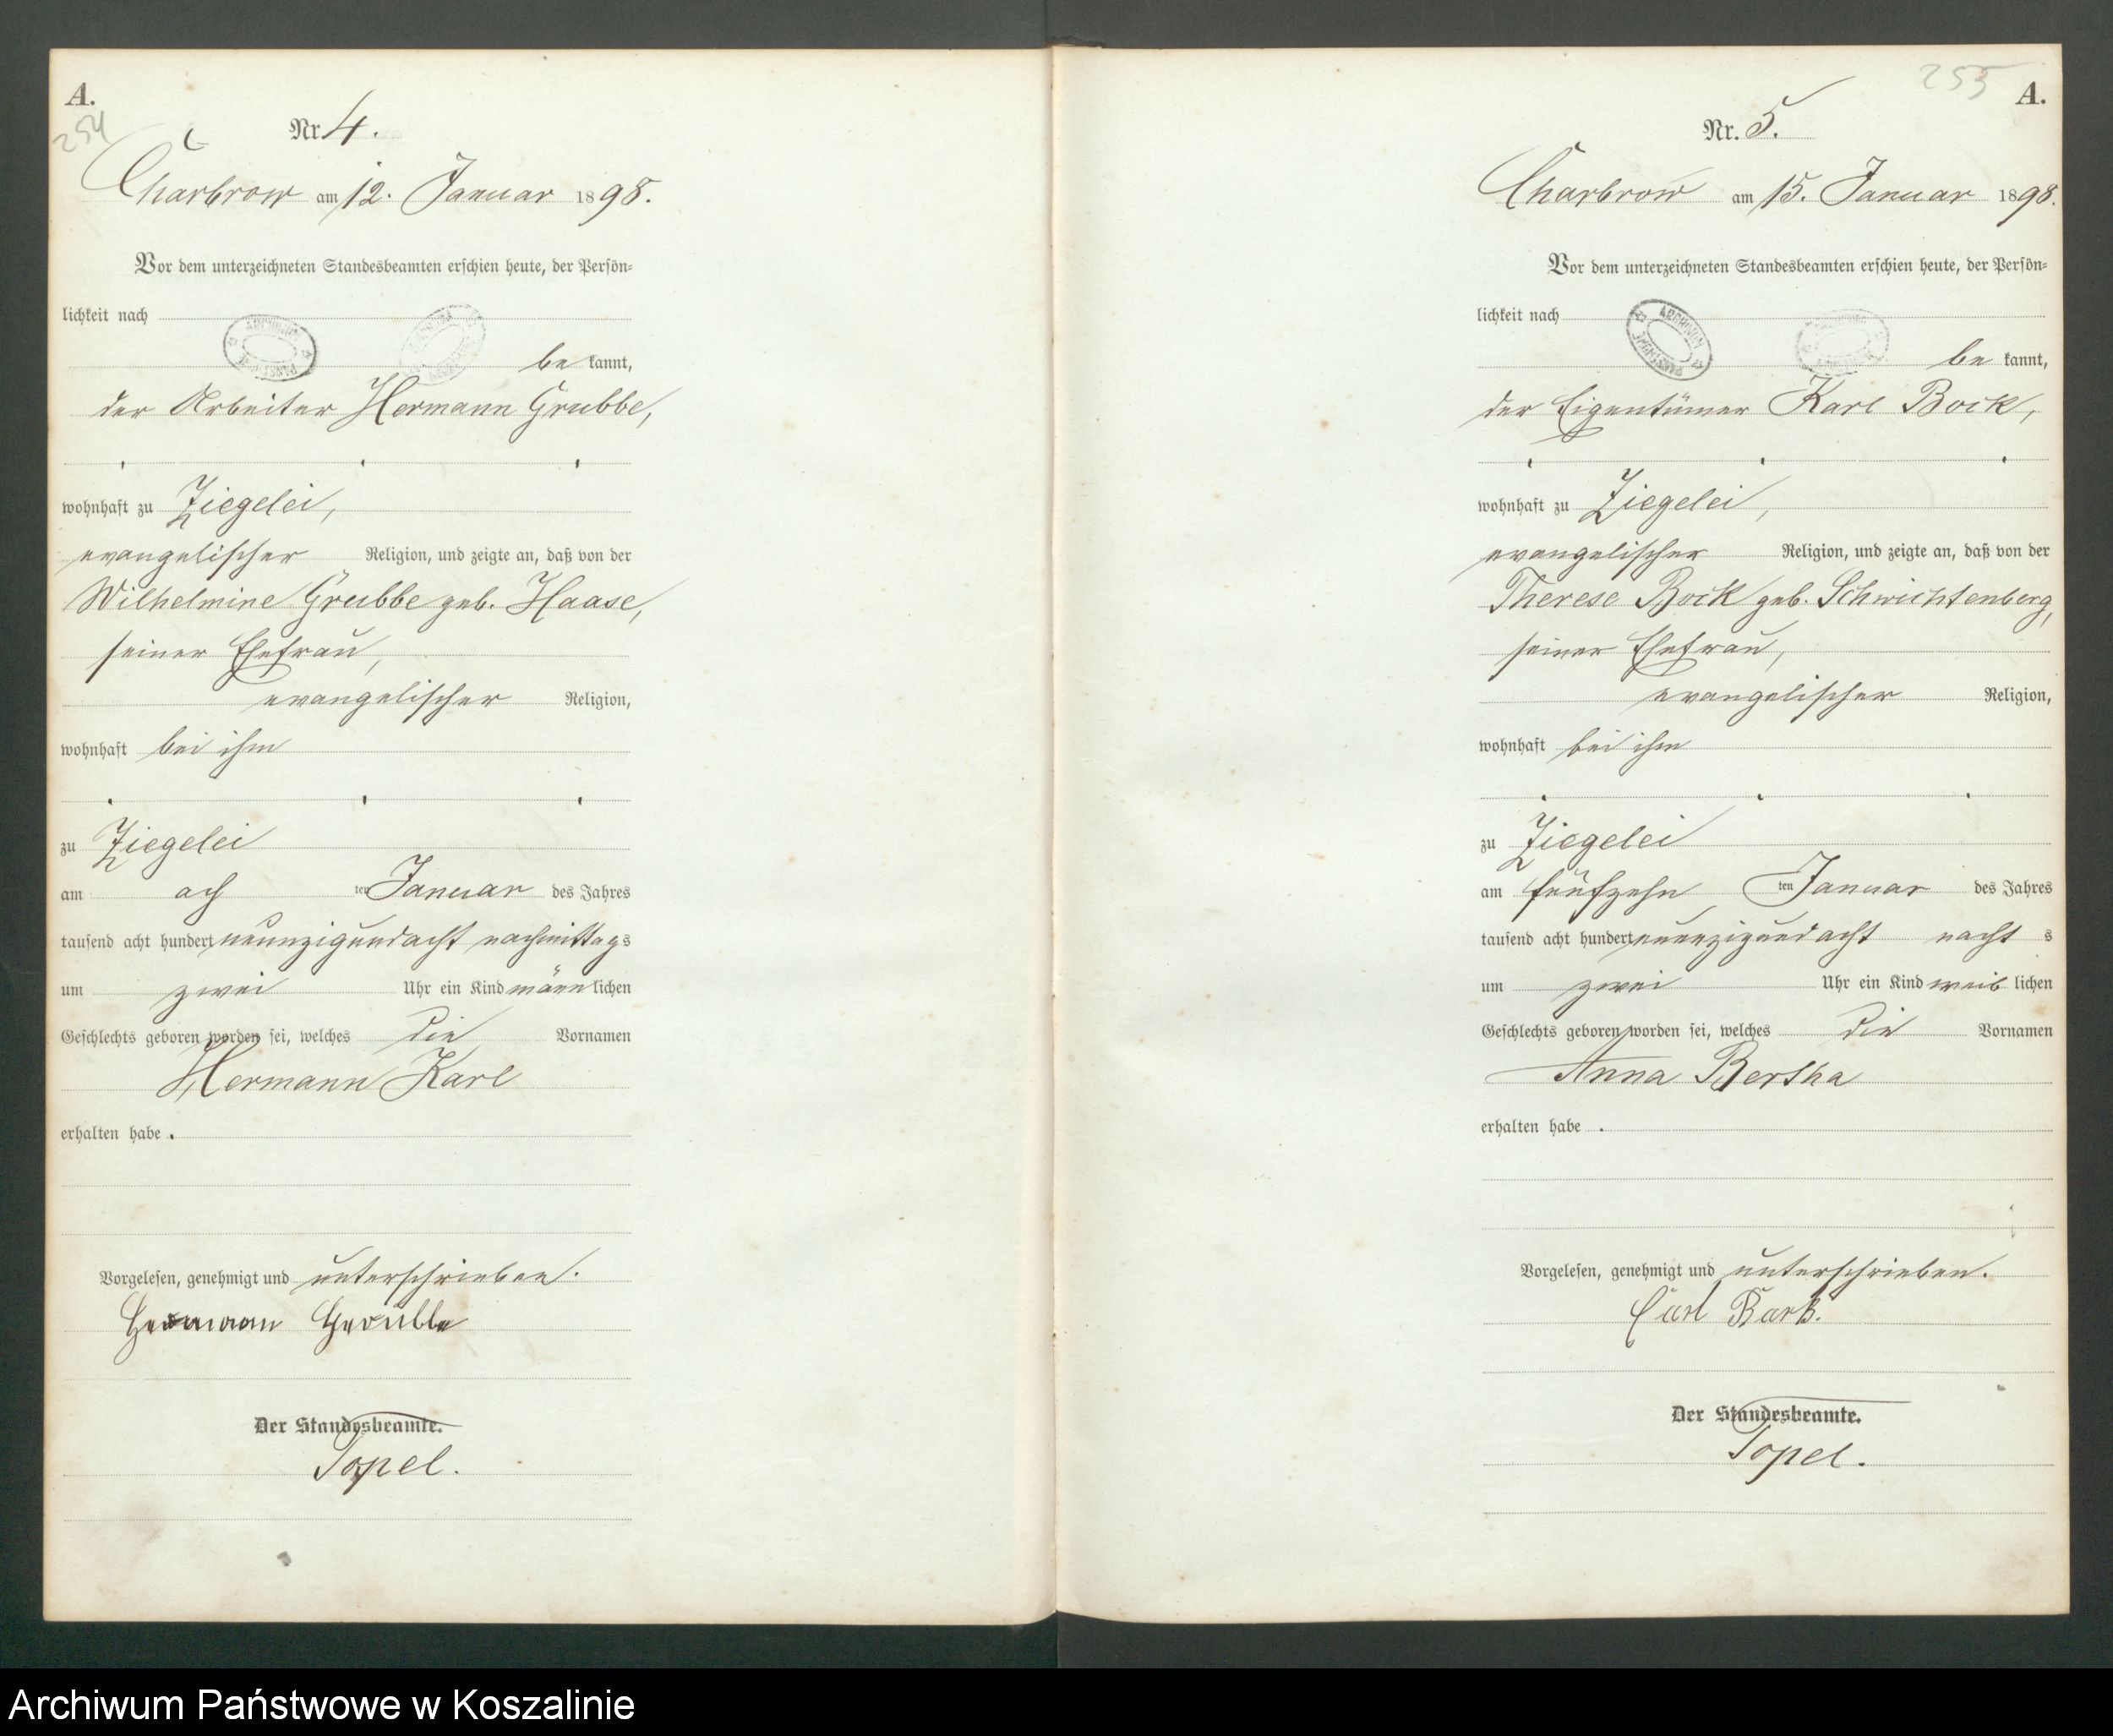 A.
254
Nr. 4.
Charbrow am 12. Januar 1898.
Vor dem unterzeichneten Standesbeamten erschien heute, der Persön-
lichkeit nach
be kannt,
der Arbeiter Hermann Grubbe,
wohnhaft zu Ziegelei,
evangelischer Religion, und zeigte an, daß von der
Wilhelmine Grubbe geb. Haase,
seiner Ehefrau,
evangelischer Religion,
wohnhaft bei ihm
zu Ziegelei
am ach ten Januar des Jahres
tausend acht hundert neunzigundacht nachmittags
um zwei Uhr ein Kind männlichen
Geschlechts geboren worden sei, welches die Vornamen
Hermann Karl
erhalten habe.
Vorgelesen, genehmigt und unterschrieben.
Hermann Grubbe
Der Standesbeamte.
Topel.
255
A.
Nr. 5.
Charbrow am 15. Januar 1898.
Vor dem unterzeichneten Standesbeamten erschien heute, der Persön-
lichkeit nach
be kannt,
der Eigentümer Karl Bock,
wohnhaft zu Ziegelei,
evangelischer Religion, und zeigte an, daß von der
Therese Bock geb. Schwichtenberg,
seiner Ehefrau,
evangelischer Religion,
wohnhaft bei ihm
zu Ziegelei
am fünfzehn ten Januar des Jahres
tausend acht hundert neunzigundacht nacht s
um zwei Uhr ein Kind weib lichen
Geschlechts geboren worden sei, welches die Vornamen
Anna Bertha
erhalten habe.
Vorgelesen, genehmigt und unterschrieben.
Carl Bock.
Der Standesbeamte.
Topel.
Archiwum Państwowe w Koszalinie